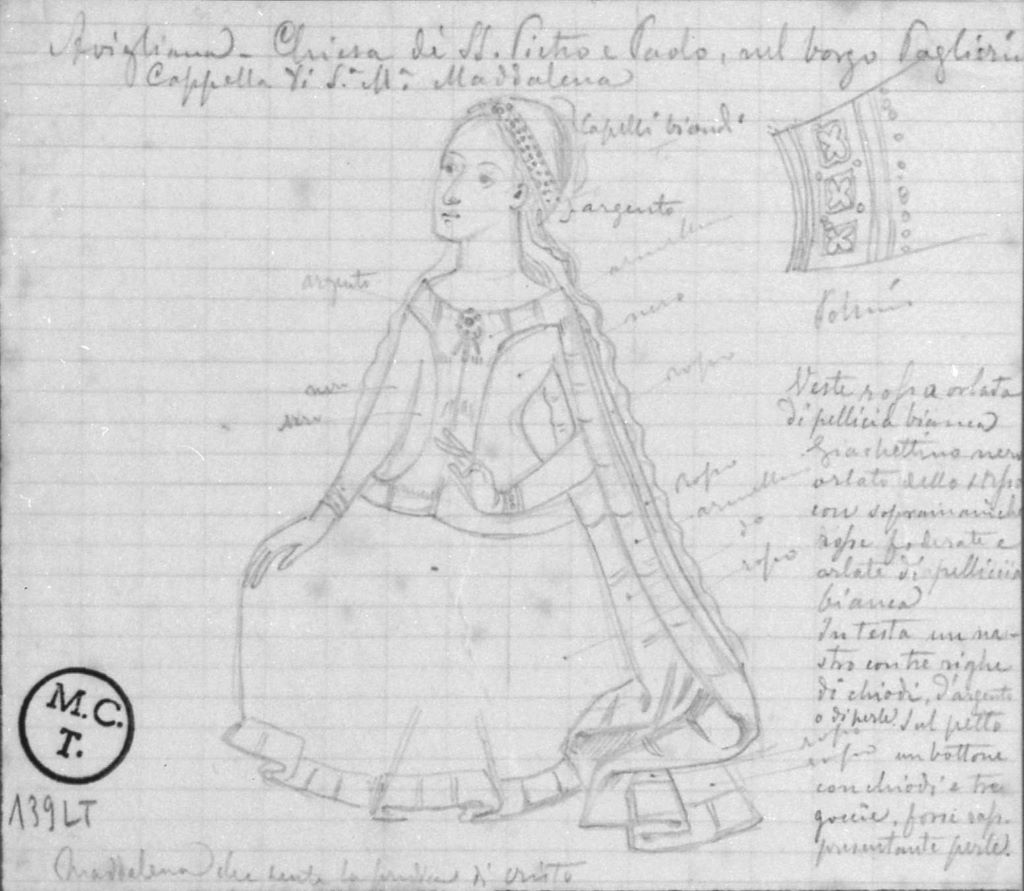 Avigliana - Chiesa di SS. Pietro e Paolo, nel borgo Paglierin
Cappella di S.ª M.ª Maddalena
Capelli biondi
argento
armellino
argento
nero
rosso
nero
rosso
armellino
do
rosso
Polsini
Veste rossa orlata
di pellicia bianca
Giachettino nero
orlato dello stesso
con sopramaniche
rosse foderate e
orlate di pelliccia
bianca
In testa un na-
stro con tre righe
di chiodi, d'argento
o di perle. Sul petto
rosso
un bottone
rosso
con chiodi e tre
goccie, forse rap-
presentante perle.
M.C.
T.
139LT
Maddalena che sente la predica di Cristo